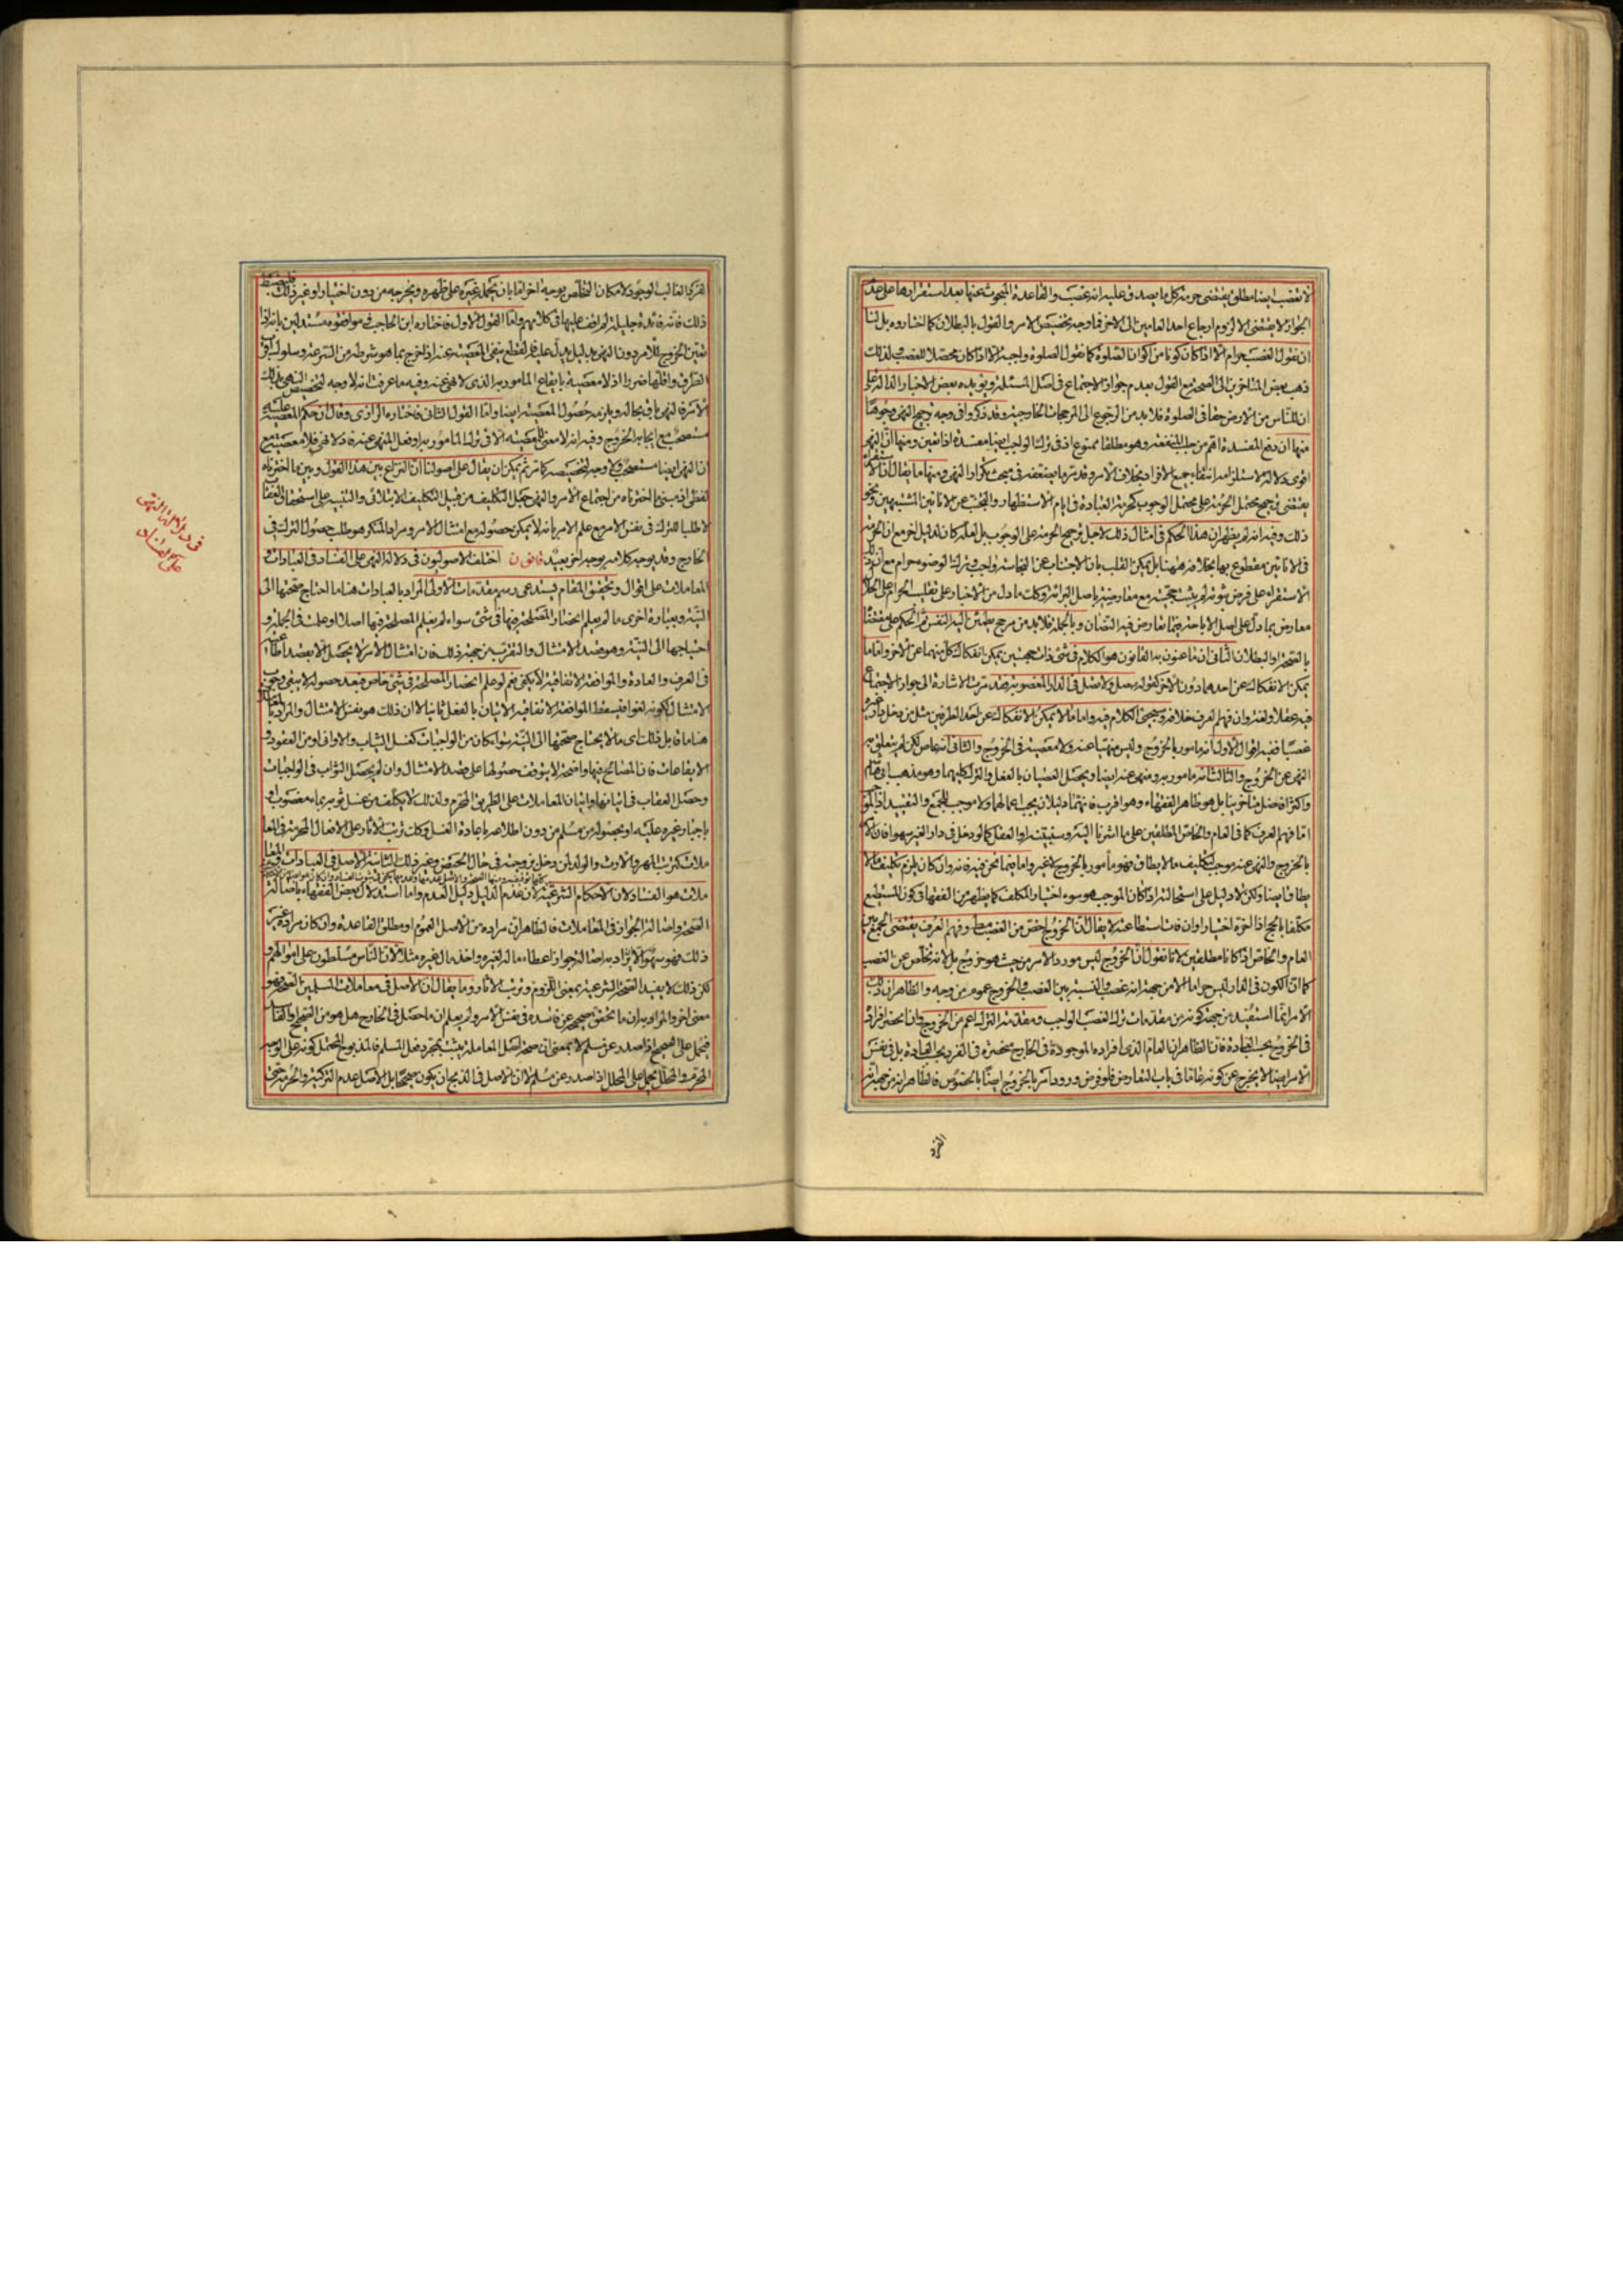 لا تغصب ايضا مطلق يقتضى حرمة كل ما يصدق عليه انه غصب والقاعدة المبحوث عنها بعد استقرارها على
الجواز لا يقتضى الا لزوم ارجاع احد العامين الى الاخر فما وجه تخصيص الامر والقول بالبطلان كما اختاروه بل لنا
ان نقول الغصب حرام الا اذا كان كونا من اكوان الصلوة كما نقول الصلوة واجبة الا اذا كان محصلا للغصب ولذلك
ذهب بعض المتاخرين الى الصحة مع القول بعدم جواز الاجتماع فى اصل المسئلة ويؤيده بعض الاخبار الدالة على
ان للناس من الارض حقا فى الصلوة فلا بد من الرجوع الى المرجحات الخارجية وقد ذكروا فى وجه ترجيح النهى وجوها
منها ان دفع المفسدة اهم من جلب المنفعة وهو مطلقا ممنوع اذ فى ترك الواجب ايضا مفسدة اذا تعين ومنها ان النهى
اقوى دلالة لاستلزامه انتفاء جميع الافراد بخلاف الامر وقد مر ما يضعفه فى مبحث تكرار النهى ومنها ما يقال ان الاستقراء
يقتضى ترجيح محتمل الحرمة على محتمل الوجوب كحرمة العبادة فى ايام الاستظهار والتجنب عن الانائين المشتبهين ونحو
ذلك وفيه انه لم يظهر ان هذا الحكم فى امثال ذلك لاجل ترجيح الحرمة على الوجوب بل لعله كان لدليل اخر مع ان الحرمة
فى الانائين مقطوع بها بخلافه ههنا بل يمكن القلب بان الاجتناب عن النجاسة واجب وترك الوضوء حرام مع ان
الاستقراء على فرض ثبوته لم يثبت حجيته مع معارضته باصل البرائة وكذا ما دل من الاخبار على تغليب الحرام على الحلال
معارض بما دل على اصل الاباحة فيما تعارض فيه النصان وبالجملة فلا بد من مرجح يطمئن اليه النفس ثم الحكم على مقتضاه
بالصحة او البطلان الثانى ان ما عنون به القانون هو الكلام فى شئ ذات جهتين يمكن انفكاك كل منهما عن الاخر واما ما
يمكن الانفكاك عن احدهما دون الاخر كقوله صل ولا تصل فى الدار المغصوبة فقد مرت الاشارة الى جواز الاجتماع
فيه عقلا ولغة وان فهم العرف خلافه وسيجئ الكلام فيه واما ما لا يمكن الانفكاك عن احد الطرفين مثل من دخل دار غيره
غصبا ففيه اقوال الاول انه مامور بالخروج وليس منهيا عنه ولا معصية فى الخروج والثانى انه عاص لكن لم يتعلق به
النهى عن الخروج والثالث انه مامور به ومنهى عنه ايضا ويحصل العصيان بالفعل والترك كليهما وهو مذهب ابى هاشم
واكثر افاضل متاخرينا بل هو ظاهر الفقهاء وهو الاقرب فانهما دليلان يجب اعمالهما ولا موجب للجمع والتقييد اذ الموجب
اما فهم العرف كما فى العام والخاص المطلقين على ما اشرنا اليه وسيجئ او العقل كما لو دخل فى دار الغير سهوا فان الامر
بالخروج والنهى عنه موجب لتكليف ما لا يطاق فهو مأمور بالخروج لا غير واما فيما نحن فيه فانه وان كان يلزم تكليف ما لا
يطاق ايضا ولكن لا دليل على استحالته اذا كان الموجب هو سوء اختيار المكلف كما يظهر من الفقهاء فى كون المستطيع
مكلفا بالحج اذا اخره اختيارا وان فات استطاعته لا يقال ان الخروج اخص من الغصب مطلقا وفهم العرف يقتضى الجمع بين
العام والخاص اذا كانا مطلقين لانا نقول ان الخروج ليس مورد الامر من حيث هو خروج بل لانه تخلص عن الغصب
كما ان الكون فى الدار ليس حراما الا من جهة انه غصب والنسبة بين الغصب والخروج عموم من وجه والظاهر ان ذلك
الامر انما استفيد من جهة كونه من مقدمات ترك الغصب الواجب ومقدمة الترك اعم من الخروج وان انحصر افراده
فى الخروج بحسب العادة فان الظاهر ان العام الذى افراده الموجودة فى الخارج منحصرة فى الفرد بحسب العادة بل فى نفس
الامر ايضا لا يخرج عن كونه عاما فى باب التعارض فلو فرض ورود امر بالخروج ايضا بالخصوص فالظاهر انه من جهة انه
الفرد
الفرد الغالب الوجود لامكان التخلص بوجه اخر اما بان يحمله غيره على ظهره ويخرجه من دون اختيار او غير ذلك
ذلك فانه فائدة جليلة لم اقف عليها فى كلامهم واما القول الاول فاختاره ابن الحاجب فى موافقوه مستدلين بانه اذا
تعين الخروج للامر دون النهى بدليل يدل عليه فالقطع بنفى المعصية عنه اذا خرج بما هو شرطه من السرعة وسلوك اقرب
الطرق واقلها ضررا اذ لا معصية بايقاع المامور به الذى لا نهى عنه وفيه ما عرفت انه لا وجه لتخصيص النهى بذلك
الامر فالنهى باق بحاله ويلزمه حصول المعصية ايضا واما القول الثانى فاختاره الرازى وقال ان حكم المعصية عليه
مستصحب مع ايجابه الخروج وفيه انه لا معنى للمعصية الا فى ترك المامور به او فعل المنهى عنه فاذا لا نهى فلا معصية مع
ان النهى ايضا مستصحب ولا وجه لتخصيصه كما مر ثم يمكن ان يقال على اصولنا ان النزاع بين هذا القول وبين ما اخترناه
لفظى اذ مبنى ما اخترناه من اجتماع الامر والنهى جعل التكليف من قبيل التكليف الابتلائى والتنبيه على استحقاق العقاب
لا طلبا للترك فى نفس الامر مع علم الامر بانه لا يمكن حصوله مع امتثال الامر ومراد المنكر هو طلب حصول الترك فى
الخارج وقد يوجه كلامه بوجه اخر بعيد قانون اختلف الاصوليون فى دلالة النهى على الفساد فى العبادات و
المعاملات على اقوال وتحقيق المقام يستدعى رسم مقدمات الاولى المراد بالعبادات هنا ما احتاج صحتها الى
النية وبعبارة اخرى ما لم يعلم انحصار المصلحة فيها فى شئ سواء لم يعلم المصلحة فيها اصلا او علمت فى الجملة و
احتياجها الى النية وهو قصد الامتثال والتقرب من جهة ذلك فان امتثال الامر لا يحصل الا بقصد اطاعته
فى العرف والعادة والموافقة الاتفاقية لا يكفى نعم لو علم انحصار المصلحة فى شئ خاص فبعد حصوله لا يبقى وجوب
الامتثال لكونه لغوا فيسقط الموافقة الاتفاقية الاتيان بالفعل ثانيا لا ان ذلك هو نفس الامتثال والمراد بالمعاملات
هنا ما قابل ذلك اى ما لا يحتاج صحتها الى النية سواء كان من الواجبات كغسل الثياب والاوانى او من العقود و
الايقاعات فان المصالح فيها واضحة لا يتوقف حصولها على قصد الامتثال وان لم يحصل الثواب فى الواجبات
وحصل العقاب فى اتيانها واتيان المعاملات على الطريق المحرم ولذلك لا يكلف من غسل ثوبه بماء مغصوب او
باجبار غيره عليه او بحصوله من مسلم من دون اطلاعه باعادة الغسل وكذا ترتب الاثار على الافعال المحرمة فى المعا
ملات كترتب المهر والارث والولد لمن دخل بزوجته فى حال الحيض وغير ذلك الثانية الاصل فى العبادات والمعا
ملات هو الفساد ولان الاحكام الشرعية لان عدم الدليل دليل العدم واما استدلال بعض الفقهاء باصالة
الصحة واصالة الجواز فى المعاملات فالظاهر ان مراده من الاصل العموم او مطلق القاعدة وان كان مراده غير
ذلك فهو سهو الا ان يراد به اصالة جواز اعطاء ماله لغيره واخذ مال غيره مثلا لان الناس مسلطون على اموالهم و
لكن ذلك لا يفيد الصحة الشرعية بمعنى اللزوم وترتب الاثار وما يقال ان الاصل فى معاملات المسلمين الصحة فهو
معنى اخر والمراد به ان ما تحقق صحيحه عن فاسده فى نفس الامر ولم يعلم ان ما حصل فى الخارج هل هو من الصحيح او الفاسد
فيحمل على الصحيح اذا صدر عن مسلم لا بمعنى ان صحة اصل المعاملة يثبت بمجرد فعل المسلم فالمذبوح المحتمل كونه على الوجه
المحرم والمحلل يحمل على المحلل اذا صدر عن مسلم لا ان الاصل فى الذبح ان يكون صحيحا بل الاصل عدم التذكية والحرمة حتى
فى دلالة النهى
على الفساد